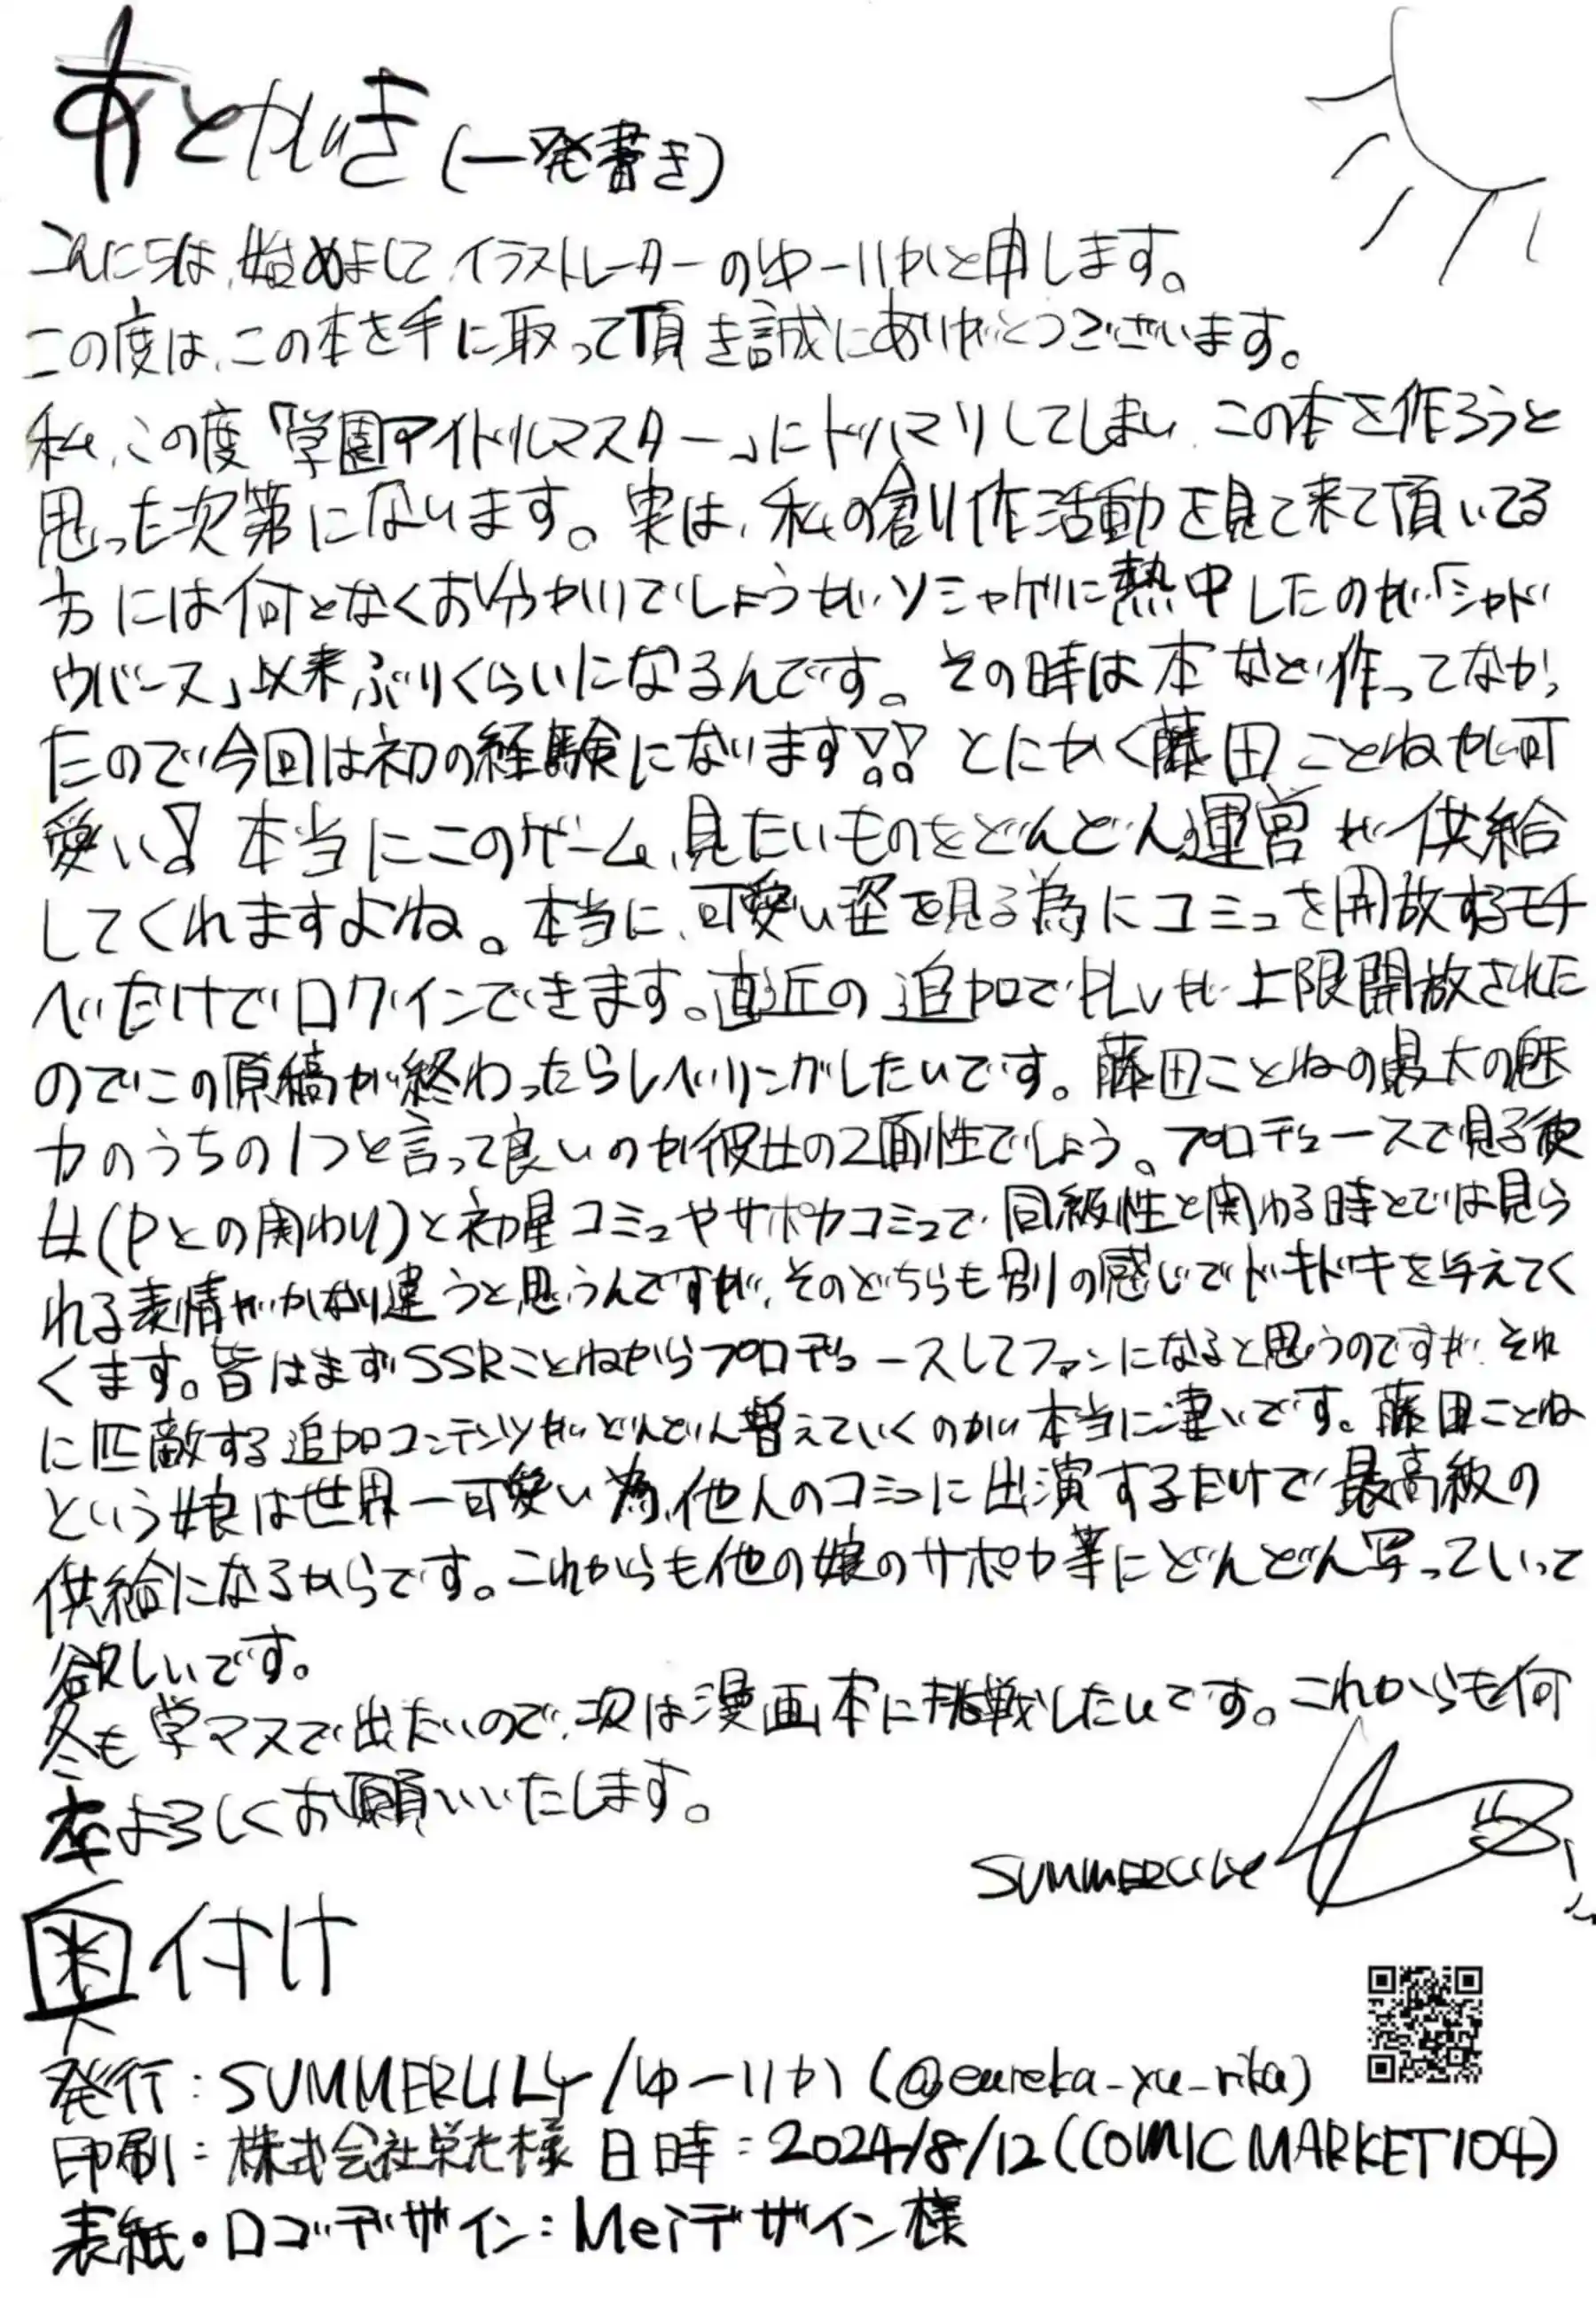 あとがき(一発書き)
こんにちは、始めまして、イラストレーターのゆーりかと申します。
この度は、この本を手に取って頂き誠にありがとうございます。
私、この度「学園アイドルマスター」にドハマリしてしまい、この本を作ろうと
思った次第になります。実は、私の創作活動を見て来て頂いてる
方には何となくお分かりでしょうが、ソシャゲに熱中したのが「シャド
ウバース」以来ぶりくらいになるんです。その時は本など作ってなかっ
たので今回は初の経験になります!! とにかく藤田ことねが可
愛い! 本当にこのゲーム、見たいものをどんどん運営が供給
してくれますよね。本当に、可愛い姿を見る為にコミュを開放するモチ
ベだけでログインできます。直近の追加でPLvが上限開放された
のでこの原稿が終わったらレベリングしたいです。藤田ことねの最大の魅
力のうちの1つと言って良いのが彼女の2面性でしょう。プロデュースで見る彼
女(Pとの関わり)と初星コミュやサポカコミュで、同級性と関わる時とでは見ら
れる表情がかなり違うと思うんですが、そのどちらも別の感じでドキドキを与えてく
くます。皆はまずSSRことねからプロデュースしてファンになると思うのですが、それ
に匹敵する追加コンテンツがどんどん増えていくのが本当に凄いです。藤田ことね
という娘は世界一可愛い為、他人のコミュに出演するだけで最高級の
供給になるからです。これからも他の娘のサポカ等にどんどん写っていって
欲しいです。
冬も学マスで出たいので、次は漫画本に挑戦したいです。これからも何
卒よろしくお願いいたします。
SUMMERLILY
奥付け
発行:SUMMERLILY/ゆーりか(@eureka_yu_rika)
印刷:株式会社栄光様 日時:2024/8/12(COMIC MARKET104)
表紙・ロゴデザイン:Meiデザイン様